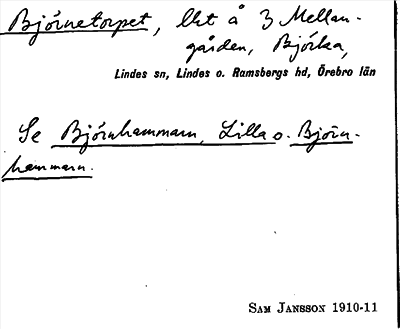 Björnetorpet, lht å 3 Mellan-
gården, Björka,
Lindes sn, Lindes o. Ramsbergs hd, Örebro län
Se Björnhammarn, Lilla o. Björn-
hammarn.
SAM JANSSON 1910-11